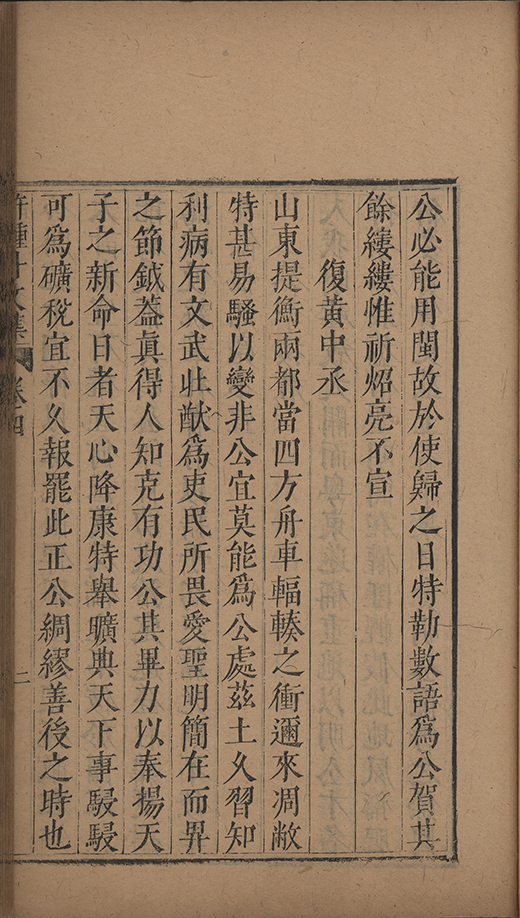 公必能用閩故於使歸之日特勒數語爲公賀其
餘縷縷惟祈炤亮不宣
復黃中丞
山東提衡兩都當四方舟車輻輳之衝邇來凋敝
特甚易騷以變非公宜莫能爲公處茲土久習知
利病有文武壯猷爲吏民所畏愛聖明簡在而畀
之節鉞葢真得人知克有功公其畢力以奉揚天
子之新命日者天心降康特舉曠典天下事駸駸
可爲礦稅宜不久報罷此正公綢繆善後之時也
許鍾斗文集 卷四 二